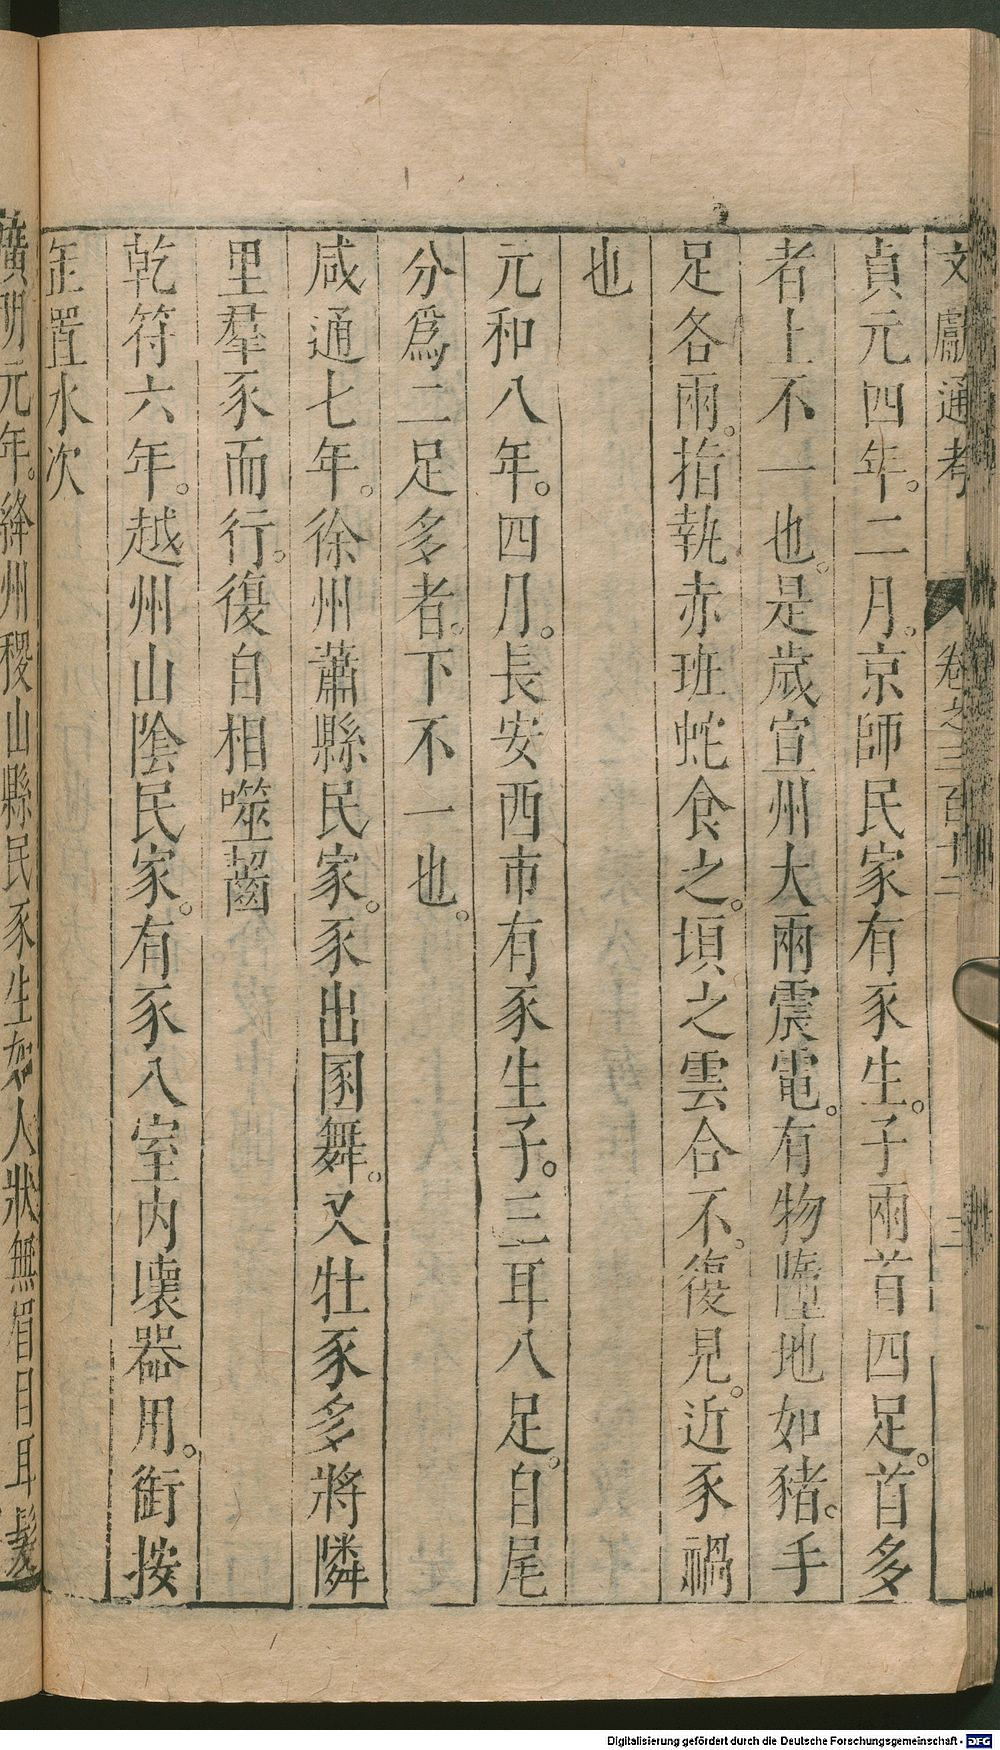 文獻通考 卷之三百十二 三
貞元四年。二月。京師民家有豕生。子兩首四足。首多
者上不一也。是歲宣州大雨震電。有物墮地如豬。手
足各兩。指執赤班蛇食之。頃之雲合不。復見。近豕禍
也
元和八年。四月。長安西市有豕生子。三耳八足。自尾
分爲二足多者。下不一也。
咸通七年。徐州蕭縣民家。豕出圂舞。又牡豕多將隣
里羣豕而行。復自相噬齧
乾符六年。越州山陰民家。有豕入室內壞器用。銜按
缶置水次
廣明元年。絳州稷山縣民豕生如人狀無眉目耳髮
Digitalisierung gefördert durch die Deutsche Forschungsgemeinschaft - DFG